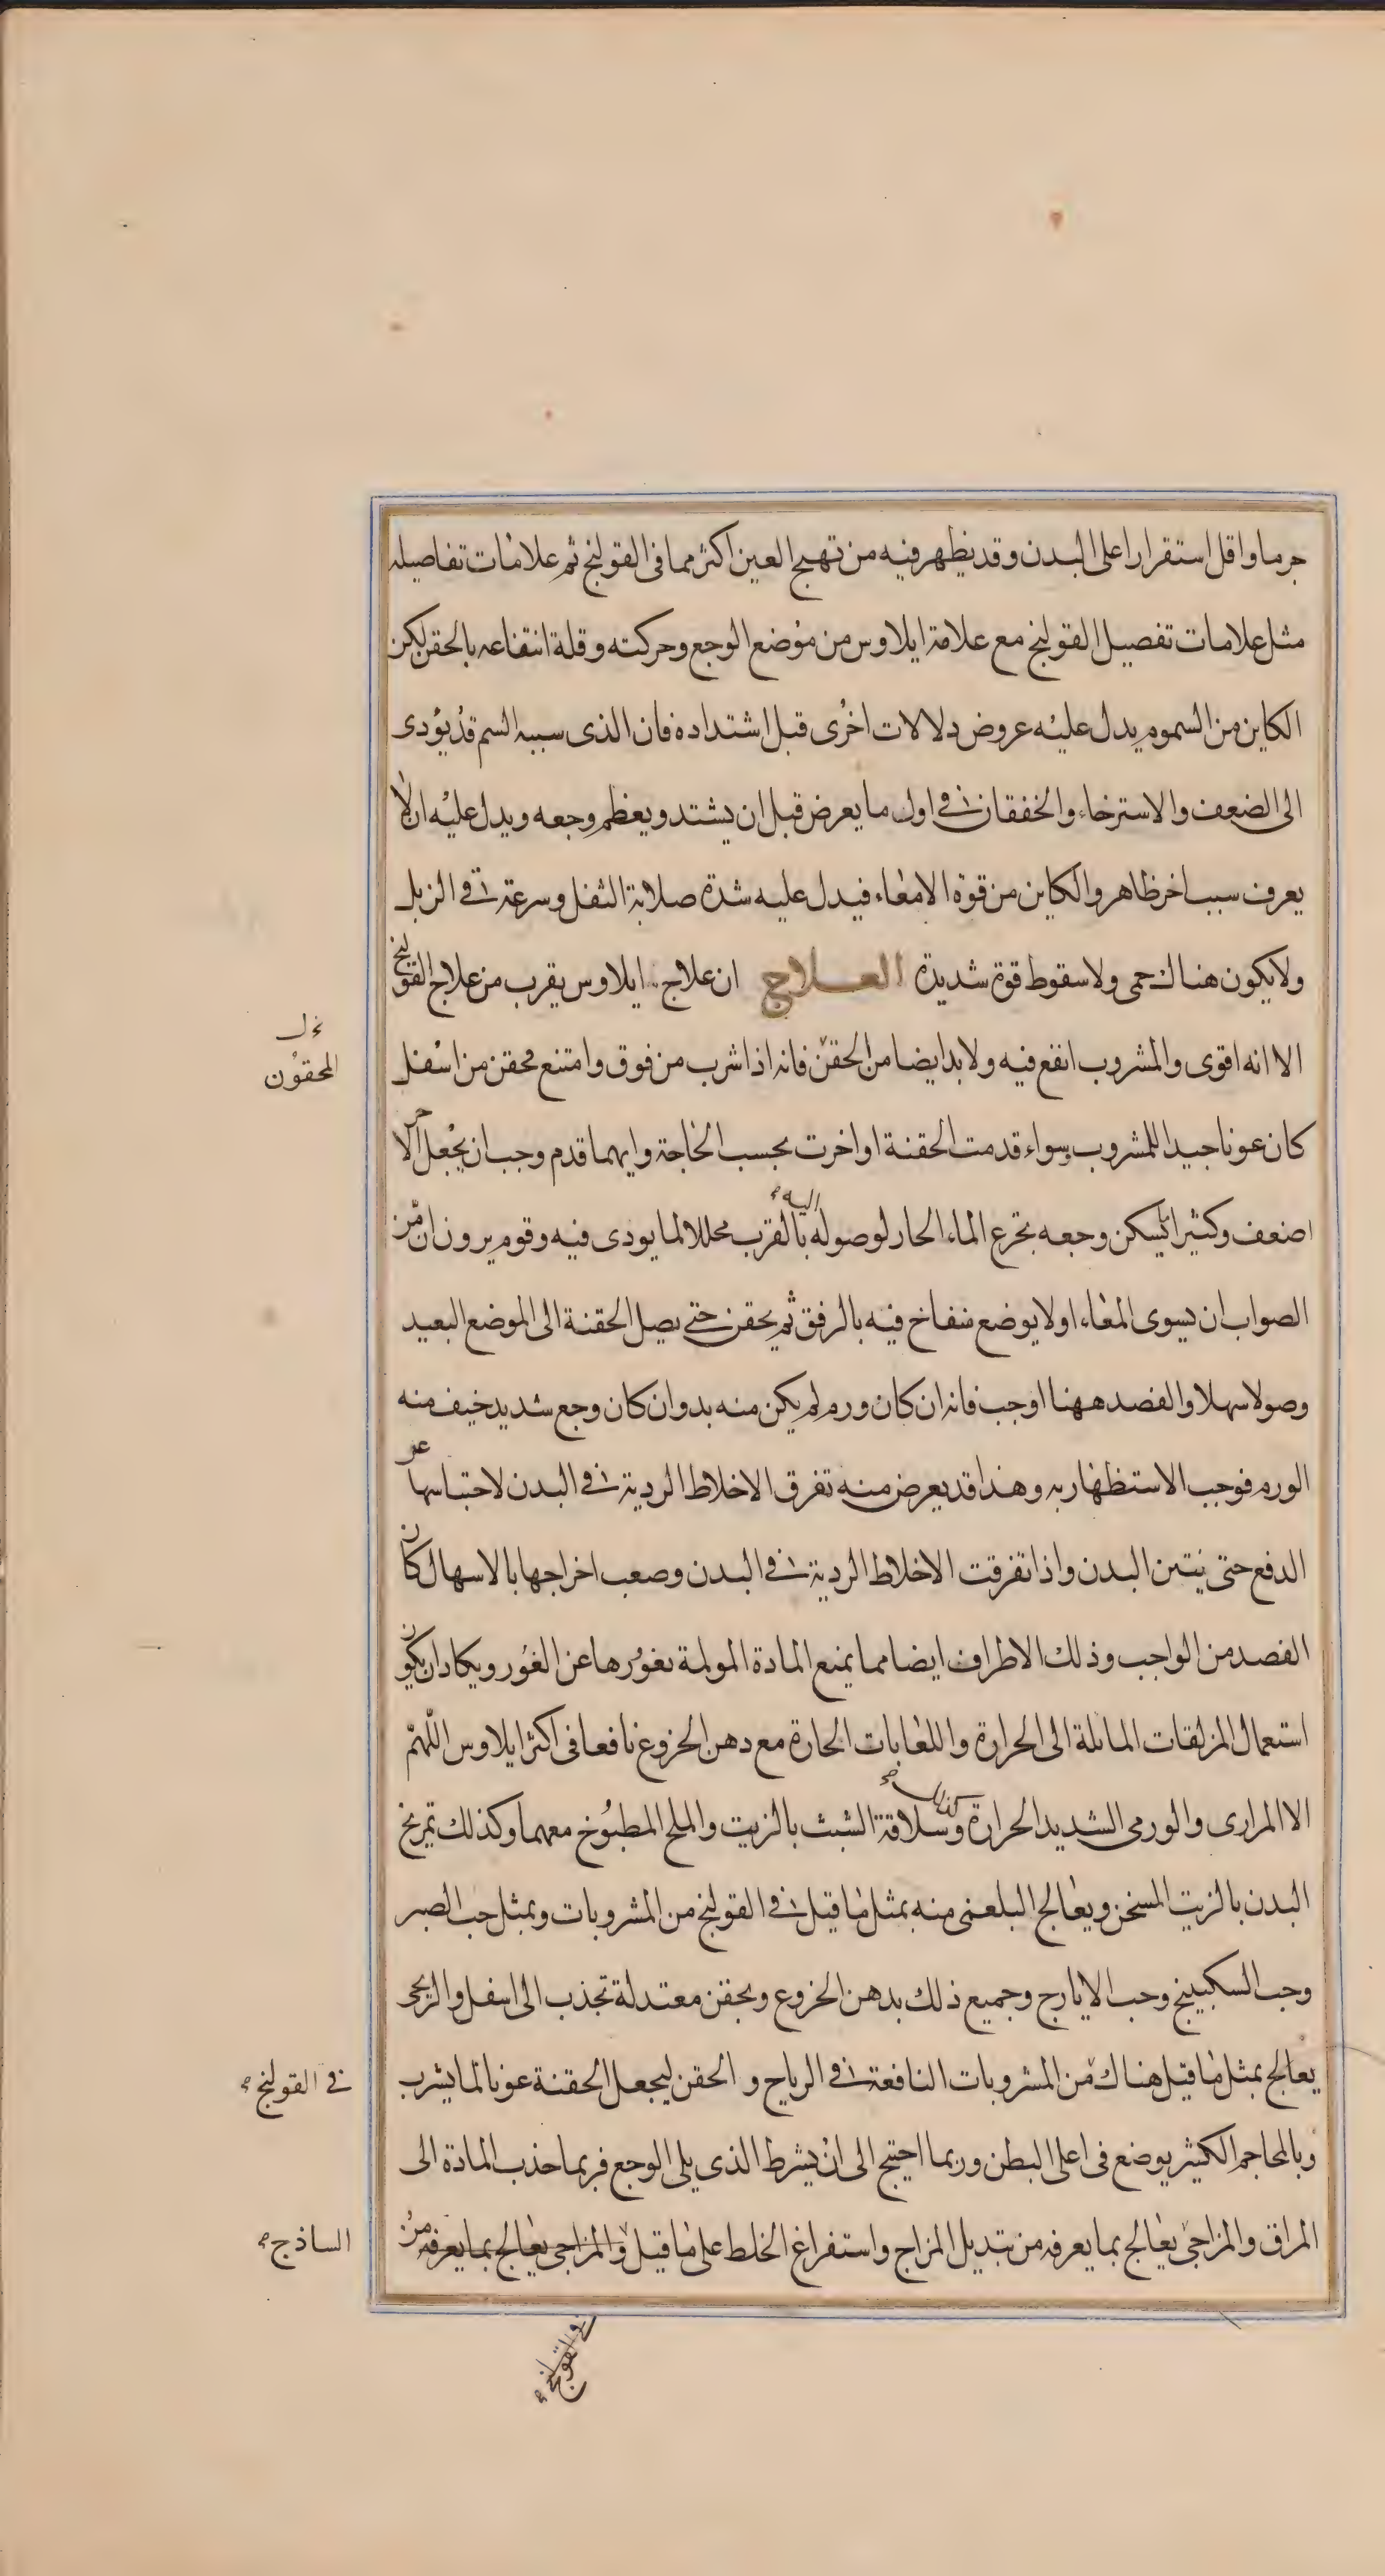 جرما واقل استقرارا على البدن وقد يظهر فيه من تهيج العين اكثر مما فى القولنج ثم علامات تفاصيله
مثل علامات تفصيل القولنج مع علامة ايلاوس من موضع الوجع وحركته وقلة انتفاعه بالحقن لكن
الكاين من السموم يدل عليه عروض دلالات اخرى قبل اشتداده فان الذى سببه السم قد يؤدى
الى الضعف والاسترخاء والخفقان فى اول ما يعرض قبل ان يشتد ويعظم وجعه ويدل عليه ان لا
يعرف سببا اخر ظاهر والكاين من قوة الامعاء فيدل عليه شدة صلابة الثفل وسرعة فى الزبل
ولا يكون هناك حمى ولا سقوط قوة شديدة العلاج ان علاج ايلاوس يقرب من علاج القولنج
الا انه اقوى والمشروب انفع فيه ولا بد ايضا من الحقن فانه اذا شرب من فوق وامتنع محقن من اسفل
المحقون
كان عونا جيدا للمشروب وسواء قدمت الحقنة او اخرت بحسب الحاجة وايهما قدم وجب ان يجعل الاخر
اضعف وكثيرا يسكن وجعه بتجرع الماء الحار لوصوله اليه بالقرب محللا لما يودى فيه وقوم يرون ان من
الصواب ان يسوى المعاء اولا بوضع منفاخ فيه بالرفق ثم يحقن حتى يصل الحقنة الى الموضع البعيد
وصولا سهلا والفصد ههنا اوجب فانه ان كان ورم لم يكن منه بد وان كان وجع شديد خيف منه
الورم فوجب الاستظهار به وهذا قد يعرض منه تفرق الاخلاط الردية فى البدن لاحتباسها عن
الدفع حتى ينتن البدن واذا تفرقت الاخلاط الردية فى البدن وصعب اخراجها بالاسهال كان
الفصد من الواجب وذلك الاطراف ايضا مما يمنع المادة المولمة بغورها عن الغور ويكاد ان يكون
استعمال المزلقات المائلة الى الحرارة واللعابات الحارة مع دهن الخروع نافعا فى اكثر ايلاوس اللهم
الا المرارى والورمى الشديد الحرارة وكذلك سلاقة الشبث بالزيت والملح المطبوخ معهما وكذلك تمريخ
البدن بالزيت المسخن ويعالج البلغمى منه بمثل ما قيل فى القولنج من المشروبات وبمثل حب الصبر
وحب السكبينج وحب الايارج وجميع ذلك بدهن الخروع وبحقن معتدلة تجذب الى اسفل والريحى
يعالج بمثل ما قيل هناك من المشروبات النافعة فى الرياح والحقن ليجعل الحقنة عونا لما يشرب
فى القولنج
وبالمحاجم الكثير يوضع فى اعلى البطن وربما احتيج الى ان يشرط الذى يلى الوجع فربما جذب المادة الى
المراق والمزاجى يعالج بما يعرفه من تبديل المزاج واستفراغ الخلط على ما قيل والمزاجى يعالج بما يعرفه من
الساذج
فى القولنج